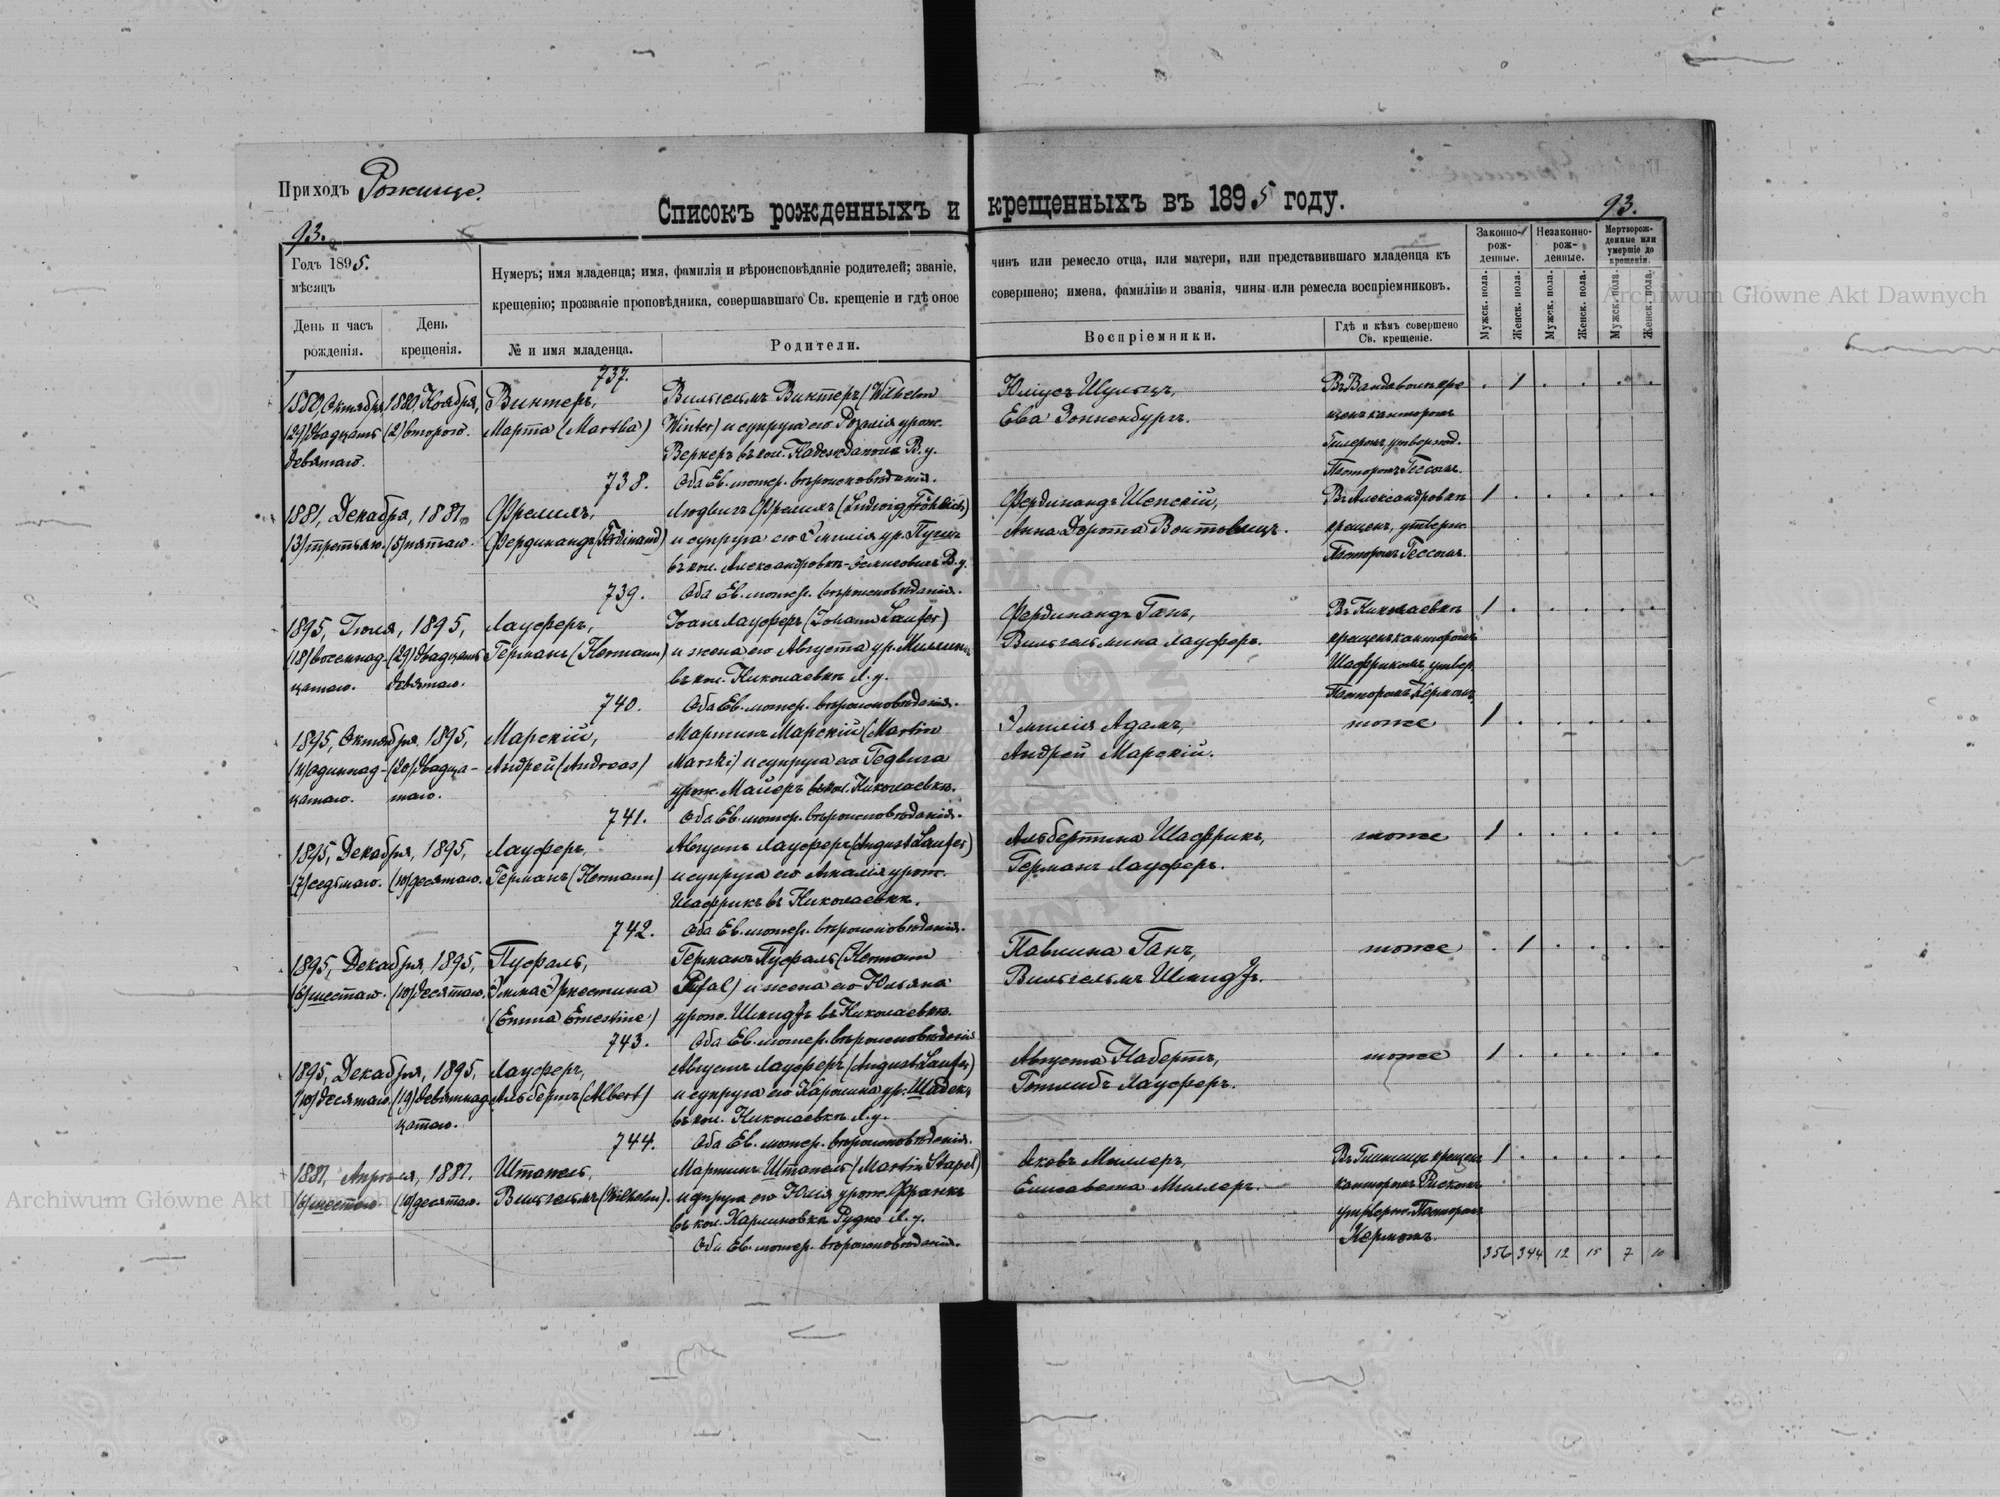 Приходъ Рожище.
Списокъ рожденныхъ и крещенныхъ въ 1895 году.
93.
93.
Годъ 1895.
мѣсяцъ
День и часъ рожденія.
День крещенія.
Нумеръ; имя младенца; имя, фамилія и вѣроисповѣданіе родителей; званіе, чинъ или ремесло отца, или матери, или представившаго младенца къ
крещенію; прозваніе проповѣдника, совершавшаго Св. крещеніе и гдѣ оное совершено; имена, фамиліи и званія, чины или ремесла воспріемниковъ.
№ и имя младенца.
Родители.
Воспріемники.
Гдѣ и кѣмъ совершено Св. крещеніе.
Законно-рож-денные.
Незаконно-рож-денные.
Мертворож-денные или умершіе до крещенія.
Мужск. пола.
Женск. пола.
Мужск. пола.
Женск. пола.
Мужск. пола.
Женск. пола.
737.
1880, Октября, 1880, Ноября, Винтеръ, Вильгельмъ Винтеръ (Wilhelm Юліусъ Шульцъ, 1
(29) двадцать (2) второго. Марта (Martha) Winter) и супруга его Розалія урож. Ева Зонненбургъ.
девятаго. Вернеръ въ кол. В. у.
Оба Ев. лютер. вѣроисповѣданія. Пасторомъ
738.
1881, Декабря, 1881, Людвигъ (Ludwig Фердинандъ Въ Александровкѣ 1
(3) третьяго. (5) пятаго. (Фердинандъ (Ferdinand) и супруга его ур. Анна Дорота крещенъ, утвержд.
въ кол. Александровкѣ В. у. Пасторомъ
Оба Ев. лютер. вѣроисповѣданія.
739.
1895, Іюля, 1895, Лауферъ, Іоганъ Лауферъ (Johann Laufer) Фердинандъ Ганъ, Въ Николаевкѣ 1
(18) восемнад- (29) двадцать Германъ (Hermann) и жена его Августа ур. Вильгельмина Лауферъ. крещенъ канторомъ
цатаго. девятаго. въ кол. Николаевкѣ Л. у. утвер.
Оба Ев. лютер. вѣроисповѣданія. Пасторомъ
740.
1895, Октября 1895, Марскій, Мартинъ Марскій (Martin Эмилія Адамъ, тоже 1
(11) одиннад- (20) двадца- Андрей (Andreas) Marski) и супруга его Гедвига Андрей Марскій.
цатаго. таго. урож. Майеръ въ кол. Николаевкѣ.
Оба Ев. лютер. вѣроисповѣданія.
741.
1895, Декабря, 1895, Лауферъ, Августъ Лауферъ (August Laufer) Альбертина Шаффрикъ, тоже 1
(7) седьмаго. (10) десятаго. Германъ (Hermann) и супруга его Амалія урож. Германъ Лауферъ.
Шаффрикъ въ Николаевкѣ.
Оба Ев. лютер. вѣроисповѣданія.
742.
1895, Декабря, 1895, Пуфаль, Германъ Пуфаль (Hermann Павлина Ганъ, тоже 1
(6) шестаго. (10) десятаго. Эмма Эрнестина Pufal) и жена его Юльяна Вильгельмъ Шмидтъ.
(Emma Ernestine) урож. Шмидтъ въ Николаевкѣ.
Оба Ев. лютер. вѣроисповѣданія
743.
1895, Декабря, 1895, Лауферъ, Августъ Лауферъ (August Laufer) Августа Габертъ, тоже 1
(10) десятаго. (19) девятнад- Альбертъ (Albert) и супруга его Каролина ур. Готлибъ Лауферъ.
цатаго. въ кол. Николаевкѣ Л. у.
Оба Ев. лютер. вѣроисповѣданія.
744.
1881, Апрѣля, 1881. Штапель, Мартинъ Штапель (Martin Stapel) Яковъ Миллеръ, крещенъ 1
(6) шестаго. (10) десятаго. Вильгельмъ (Wilhelm). и супруга его Юлія урож. Франкъ Елисавета Миллеръ. канторомъ
въ кол. Л. у. утвержд. Пасторомъ
Оба Ев. лютер. вѣроисповѣданія.
356 344 12 15 7 10
Archiwum Główne Akt Dawnych
Archiwum Główne Akt Dawnych